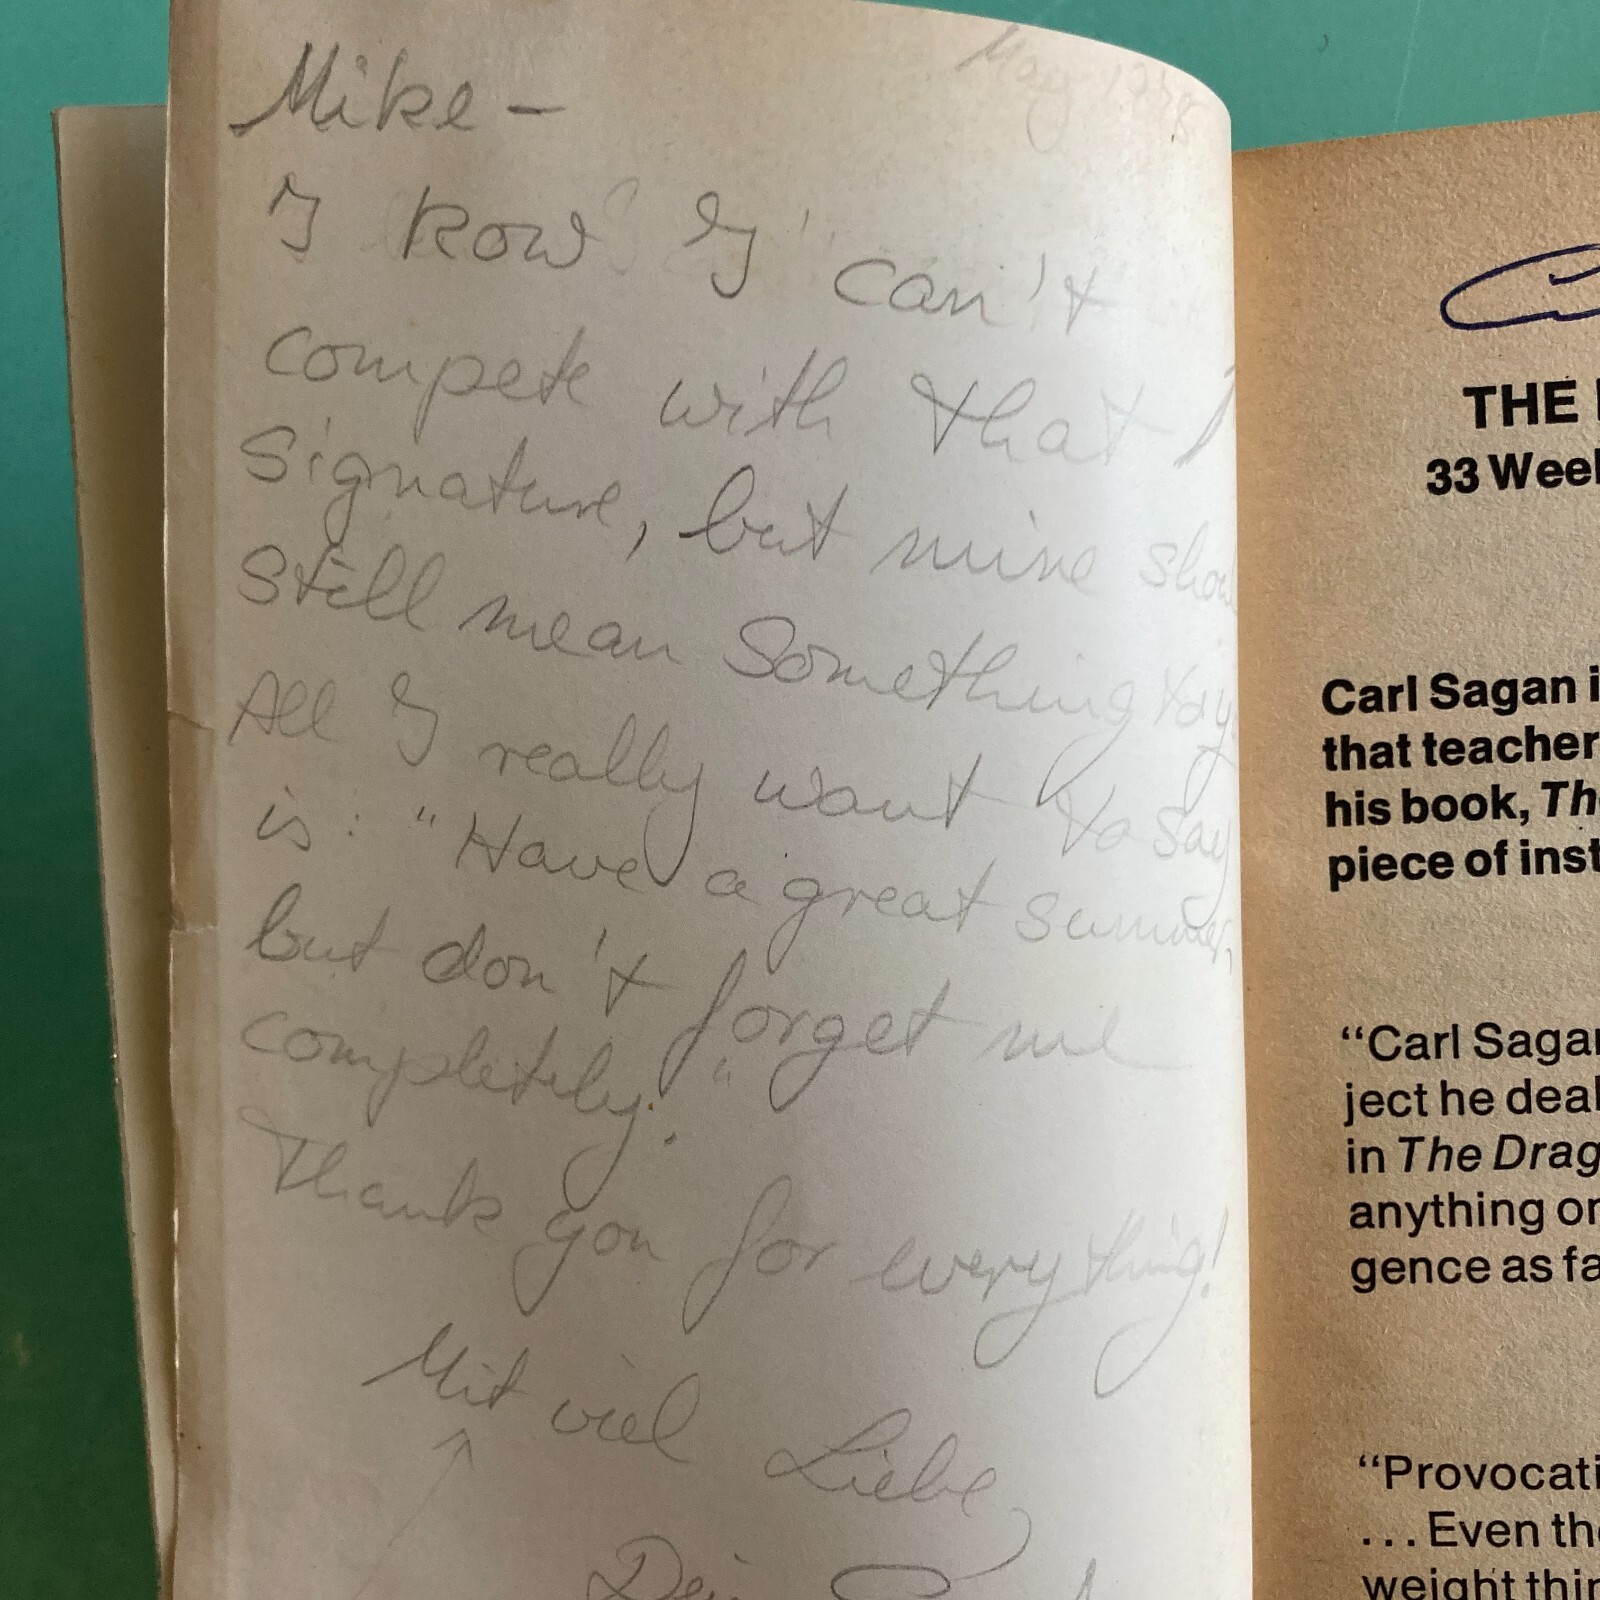 May 1978
Mike –
I kow I can't
compete with that
signature, but mine shou
still mean something to y
All I really want to say
is: "Have a great summer,
but don't forget me
completely."
Thank you for everything!
Mit viel Liebe,
THE
33 Week
Carl Sagan i
that teacher
his book, Th
piece of inst
“Carl Sagan
ject he deal
in The Drag
anything or
gence as fa
“Provocati
...Even the
weight thin